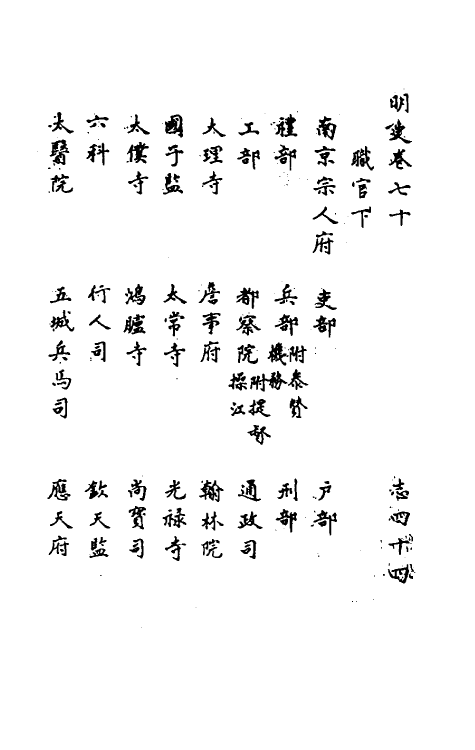 明史卷七十　志四十四
職官下
南京宗人府　吏部　户部
禮部　兵部附叅贊機務　刑部
工部　都察院附提督操江　通政司
大理寺　詹事府　翰林院
國子監　太常寺　光禄寺
太僕寺　鴻臚寺　尚寶司
六科　行人司　欽天監
太醫院　五城兵馬司　應天府